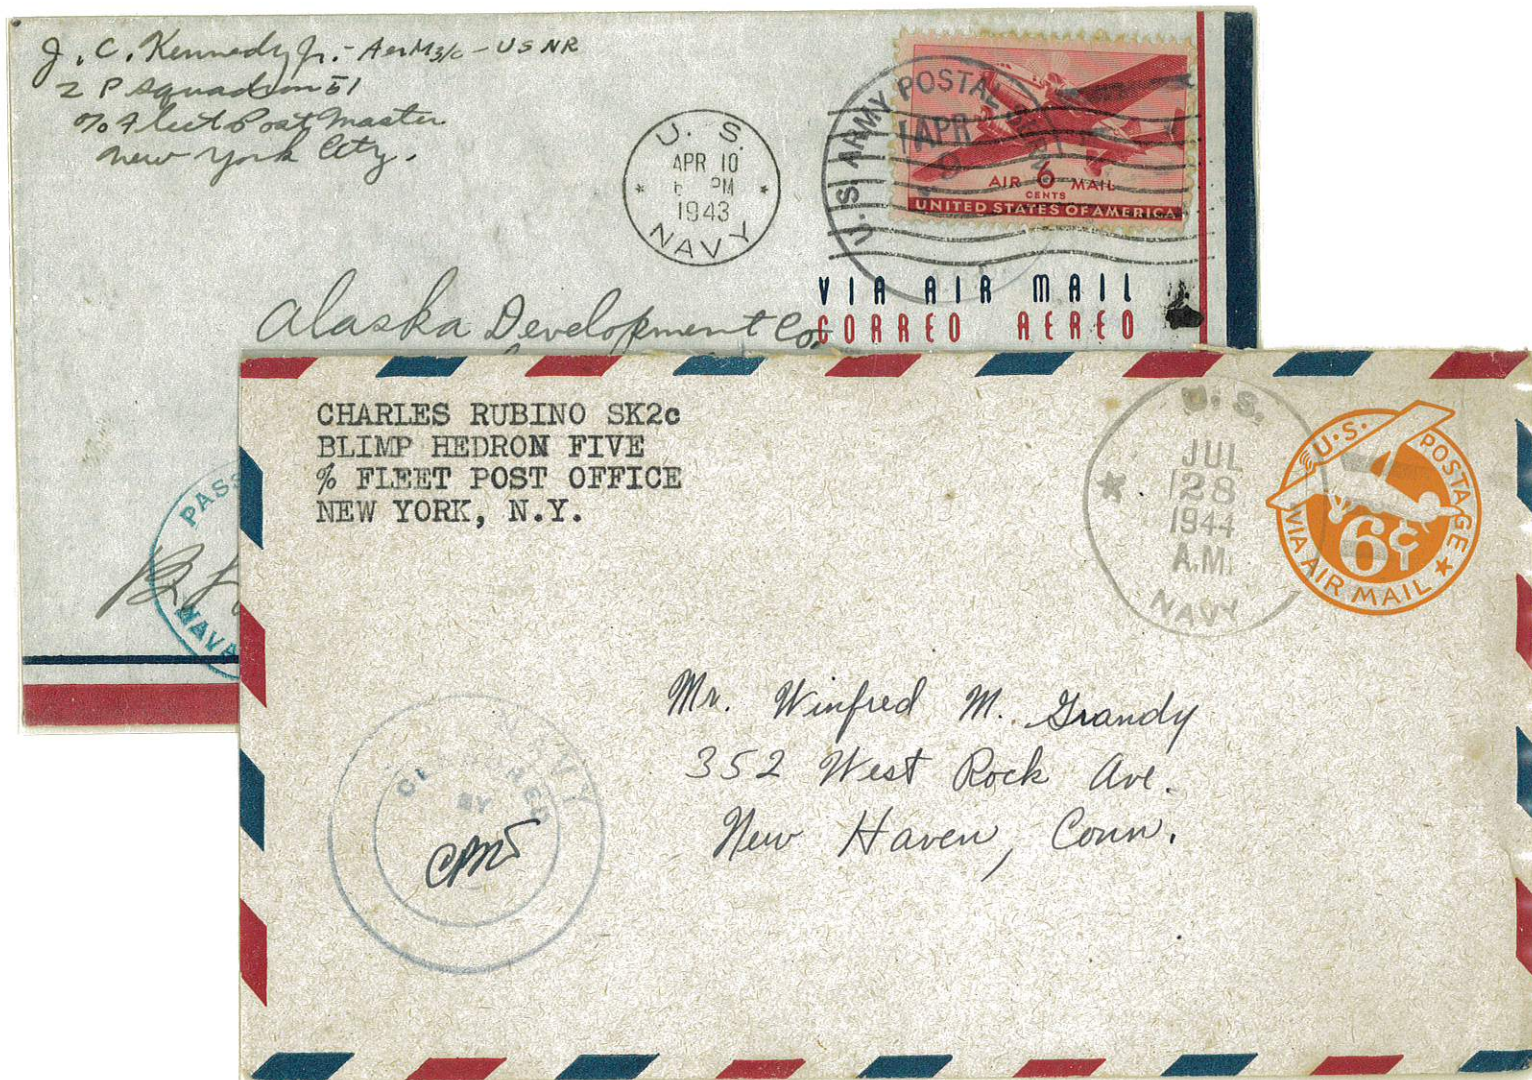 J. C. Kennedy Jr. - AerM3/c - USNR
Z P Squadron 51
% Fleet Post Master
New York City.
U. S.
APR 10
PM
1943
NAVY
U.S. ARMY POSTAL
APR
AIR 6 MAIL
CENTS
UNITED STATES OF AMERICA
VIA AIR MAIL
CORREO AEREO
Alaska Development Co.
PASS
NAVA
CHARLES RUBINO SK2c
BLIMP HEDRON FIVE
% FLEET POST OFFICE
NEW YORK, N.Y.
U. S.
JUL
28
1944
A.M.
NAVY
U.S. POSTAGE
6¢
VIA AIR MAIL
Mr. Winfred M. Grandy
352 West Rock Ave.
New Haven, Conn.
NAVY
BY